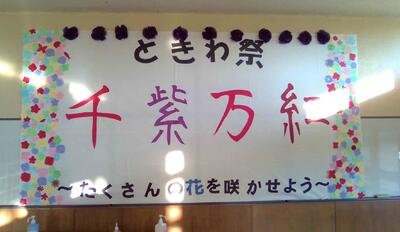 ときわ祭
千紫万紅
～たくさんの花を咲かせよう～